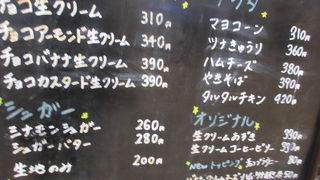 チョコ生クリーム 310円
チョコアーモンド生クリーム 340円
チョコバナナ生クリーム 390円
チョコカスタード生クリーム 390円
シュガー
シナモンシュガー 260円
シュガーバター 280円
生地のみ 200円
マヨコーン 310円
ツナきゅうり 360円
ハムチーズ 380円
やきそば 390円
タルタルチキン 420円
オリジナル
生クリームあずき 390円
生クリームコーヒーゼリー 390円
NEW トッピング 80円